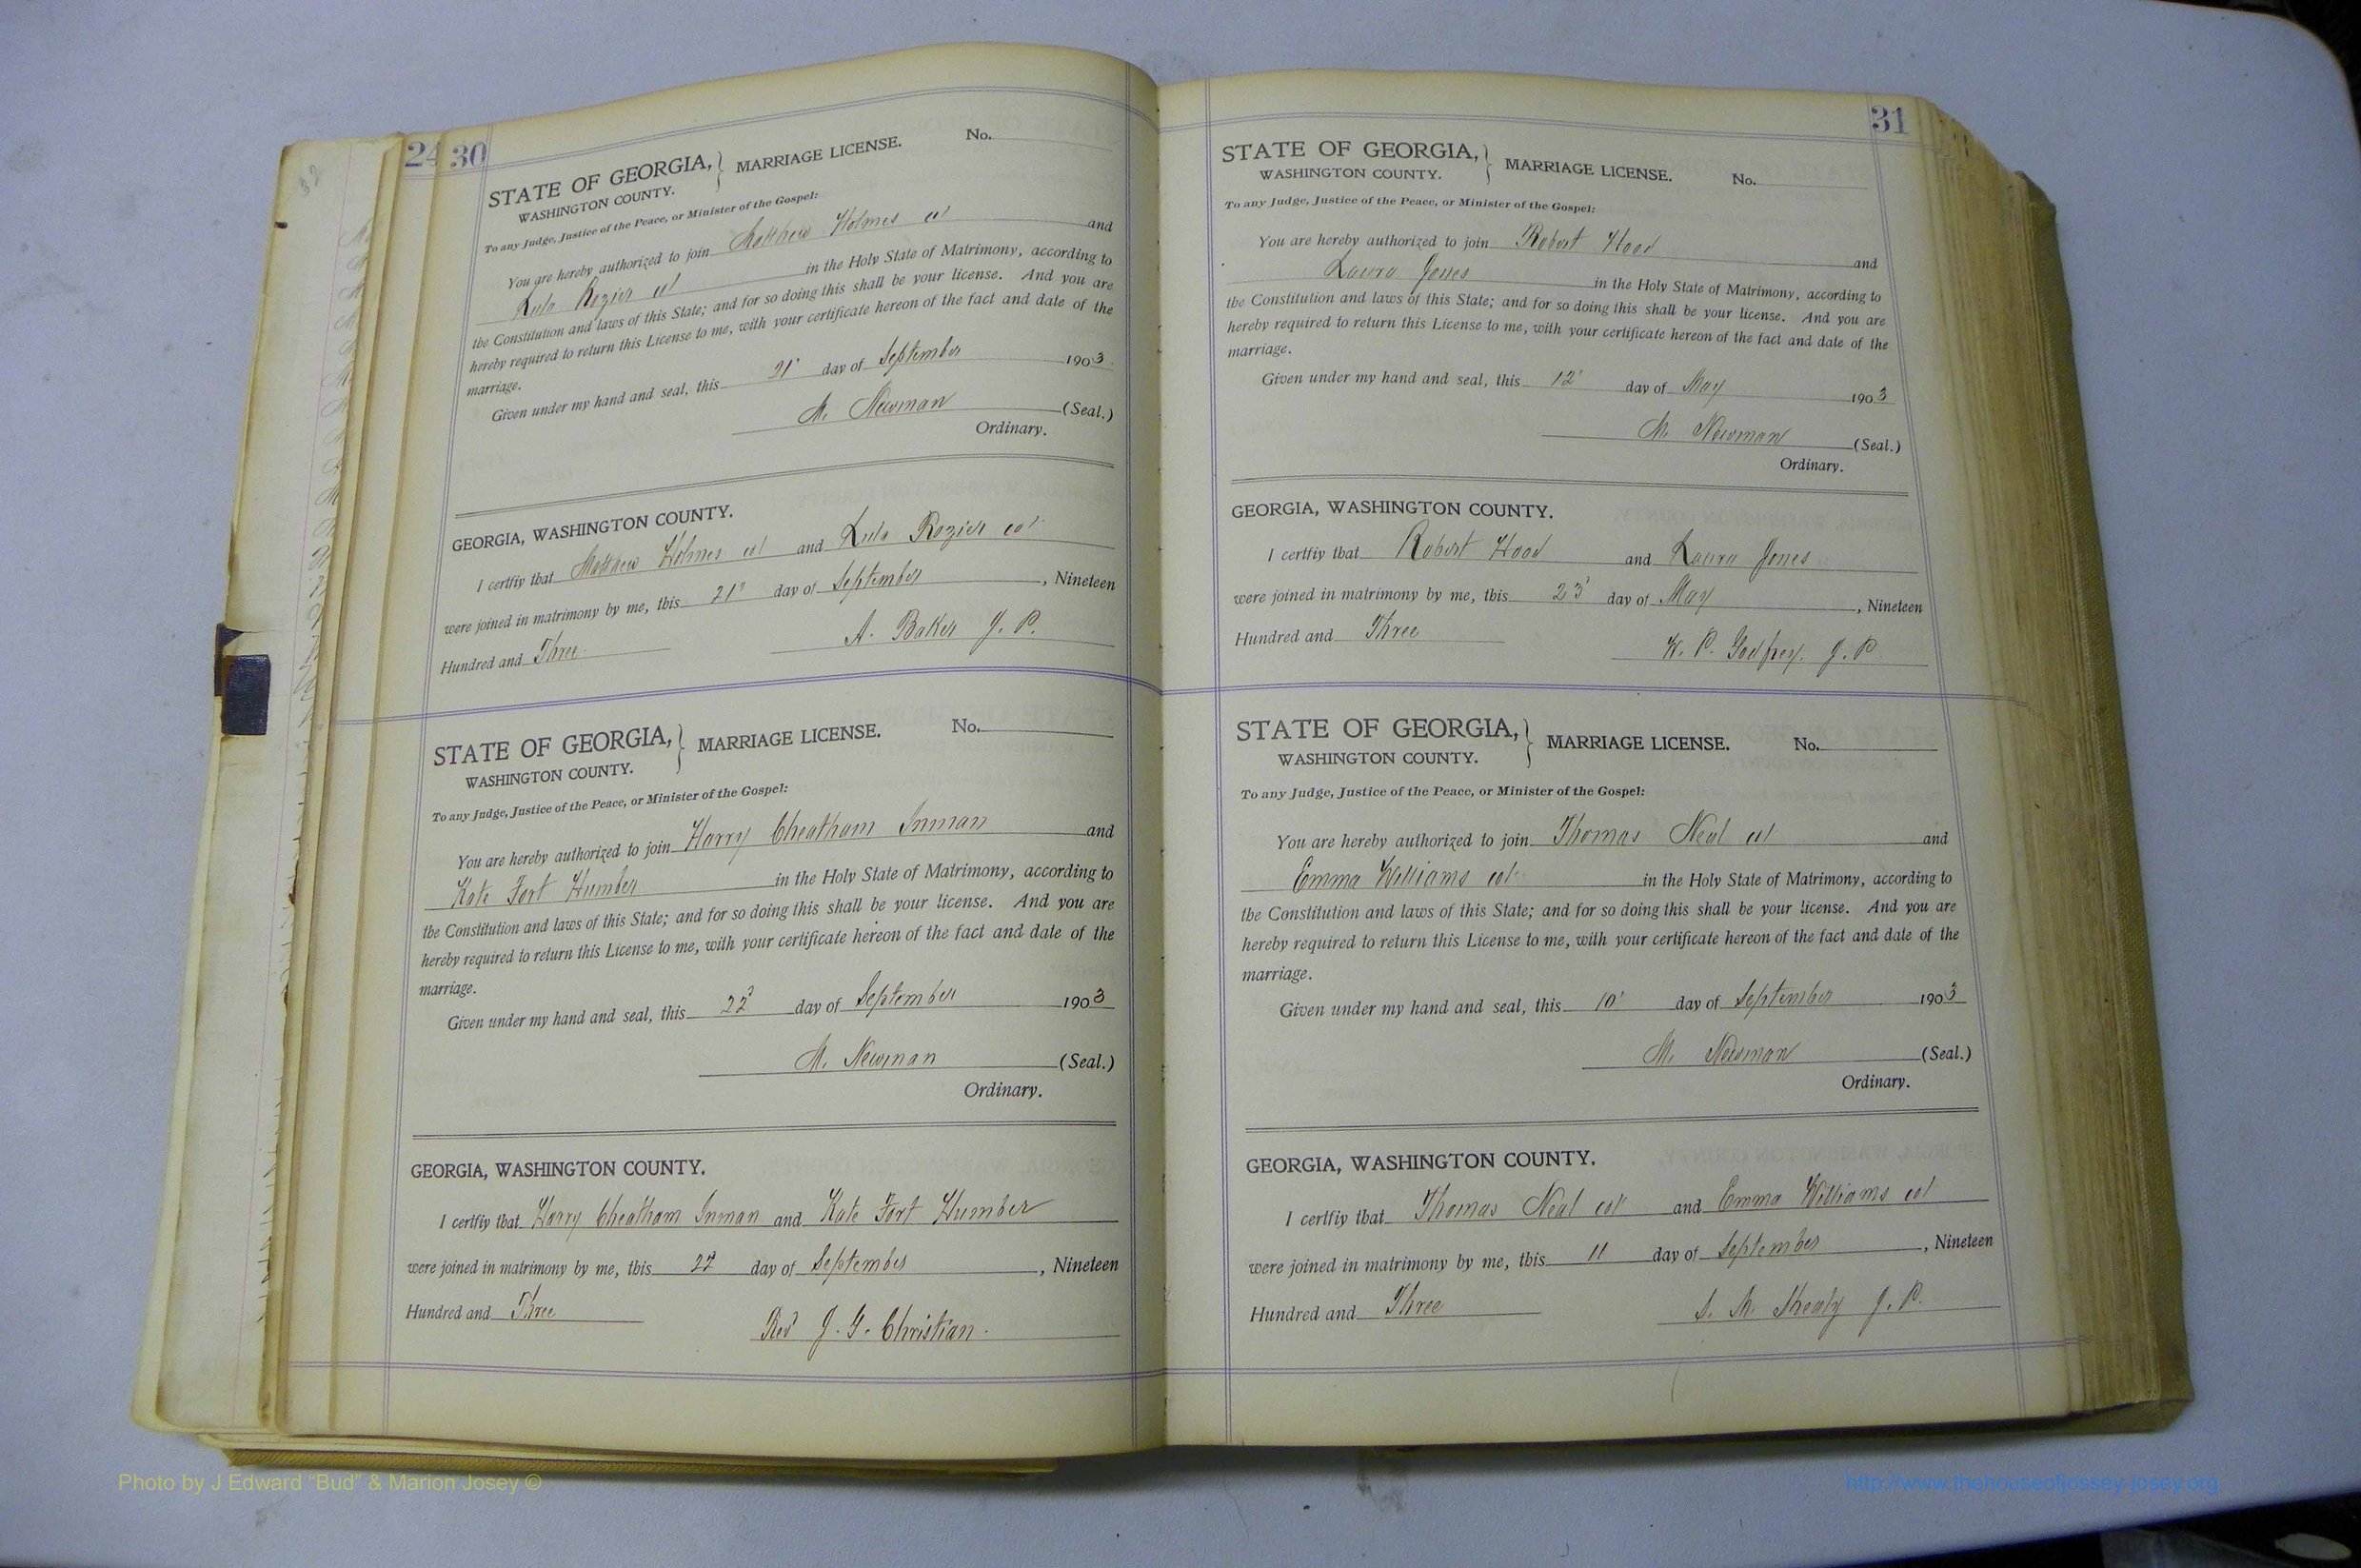 24 30
STATE OF GEORGIA, } MARRIAGE LICENSE. No.
WASHINGTON COUNTY.
To any Judge, Justice of the Peace, or Minister of the Gospel:
You are hereby authorized to join Matthew Holmes col and
Lula Rozier col in the Holy State of Matrimony, according to
the Constitution and laws of this State; and for so doing this shall be your license. And you are
hereby required to return this License to me, with your certificate hereon of the fact and date of the
marriage.
Given under my hand and seal, this 21' day of September 1903.
M. Newman (Seal.)
Ordinary.
GEORGIA, WASHINGTON COUNTY.
I certfiy that Matthew Holmes col and Lula Rozier col
were joined in matrimony by me, this 21' day of September, Nineteen
Hundred and Three
A. Baker J. P.
STATE OF GEORGIA, } MARRIAGE LICENSE. No.
WASHINGTON COUNTY.
To any Judge, Justice of the Peace, or Minister of the Gospel:
You are hereby authorized to join Harry Cheatham Inman and
Kate Fort Humber in the Holy State of Matrimony, according to
the Constitution and laws of this State; and for so doing this shall be your license. And you are
hereby required to return this License to me, with your certificate hereon of the fact and date of the
marriage.
Given under my hand and seal, this 22 day of September 1903
M. Newman (Seal.)
Ordinary.
GEORGIA, WASHINGTON COUNTY.
I certfiy that Harry Cheatham Inman and Kate Fort Humber
were joined in matrimony by me, this 22 day of September, Nineteen
Hundred and Three
Rev J. G. Christian.
31
STATE OF GEORGIA, } MARRIAGE LICENSE. No.
WASHINGTON COUNTY.
To any Judge, Justice of the Peace, or Minister of the Gospel:
You are hereby authorized to join Robert Hood and
Laura Jones in the Holy State of Matrimony, according to
the Constitution and laws of this State; and for so doing this shall be your license. And you are
hereby required to return this License to me, with your certificate hereon of the fact and date of the
marriage.
Given under my hand and seal, this 12' day of May 1903
M. Newman (Seal.)
Ordinary.
GEORGIA, WASHINGTON COUNTY.
I certfiy that Robert Hood and Laura Jones
were joined in matrimony by me, this 23' day of May, Nineteen
Hundred and Three
K. P. Godfrey. J. P.
STATE OF GEORGIA, } MARRIAGE LICENSE. No.
WASHINGTON COUNTY.
To any Judge, Justice of the Peace, or Minister of the Gospel:
You are hereby authorized to join Thomas Neal col and
Emma Williams col in the Holy State of Matrimony, according to
the Constitution and laws of this State; and for so doing this shall be your license. And you are
hereby required to return this License to me, with your certificate hereon of the fact and date of the
marriage.
Given under my hand and seal, this 10' day of September 1903
M. Newman (Seal.)
Ordinary.
GEORGIA, WASHINGTON COUNTY.
I certfiy that Thomas Neal col and Emma Williams col
were joined in matrimony by me, this 11 day of September, Nineteen
Hundred and Three
S. M. Shealy J. P.
Photo by J Edward "Bud" & Marion Josey ©
http://www.thehouseofjossey-josey.org